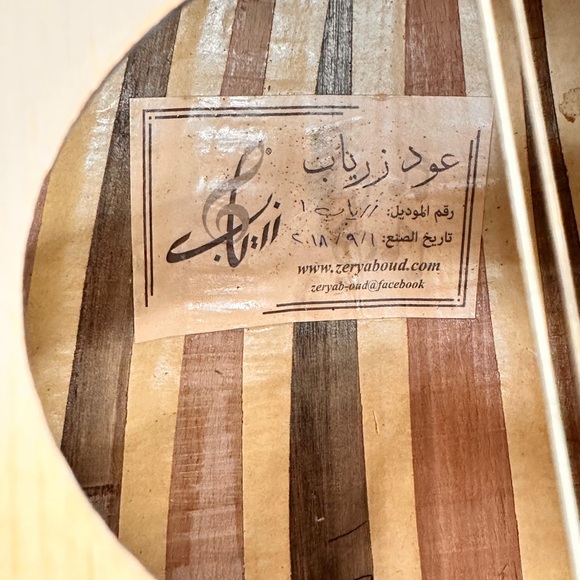 عود زرياب
زرياب
رقم الموديل: زرياب ١
تاريخ الصنع: ٢٠١٨/٩/١
www.zeryaboud.com
zeryab-oud@facebook